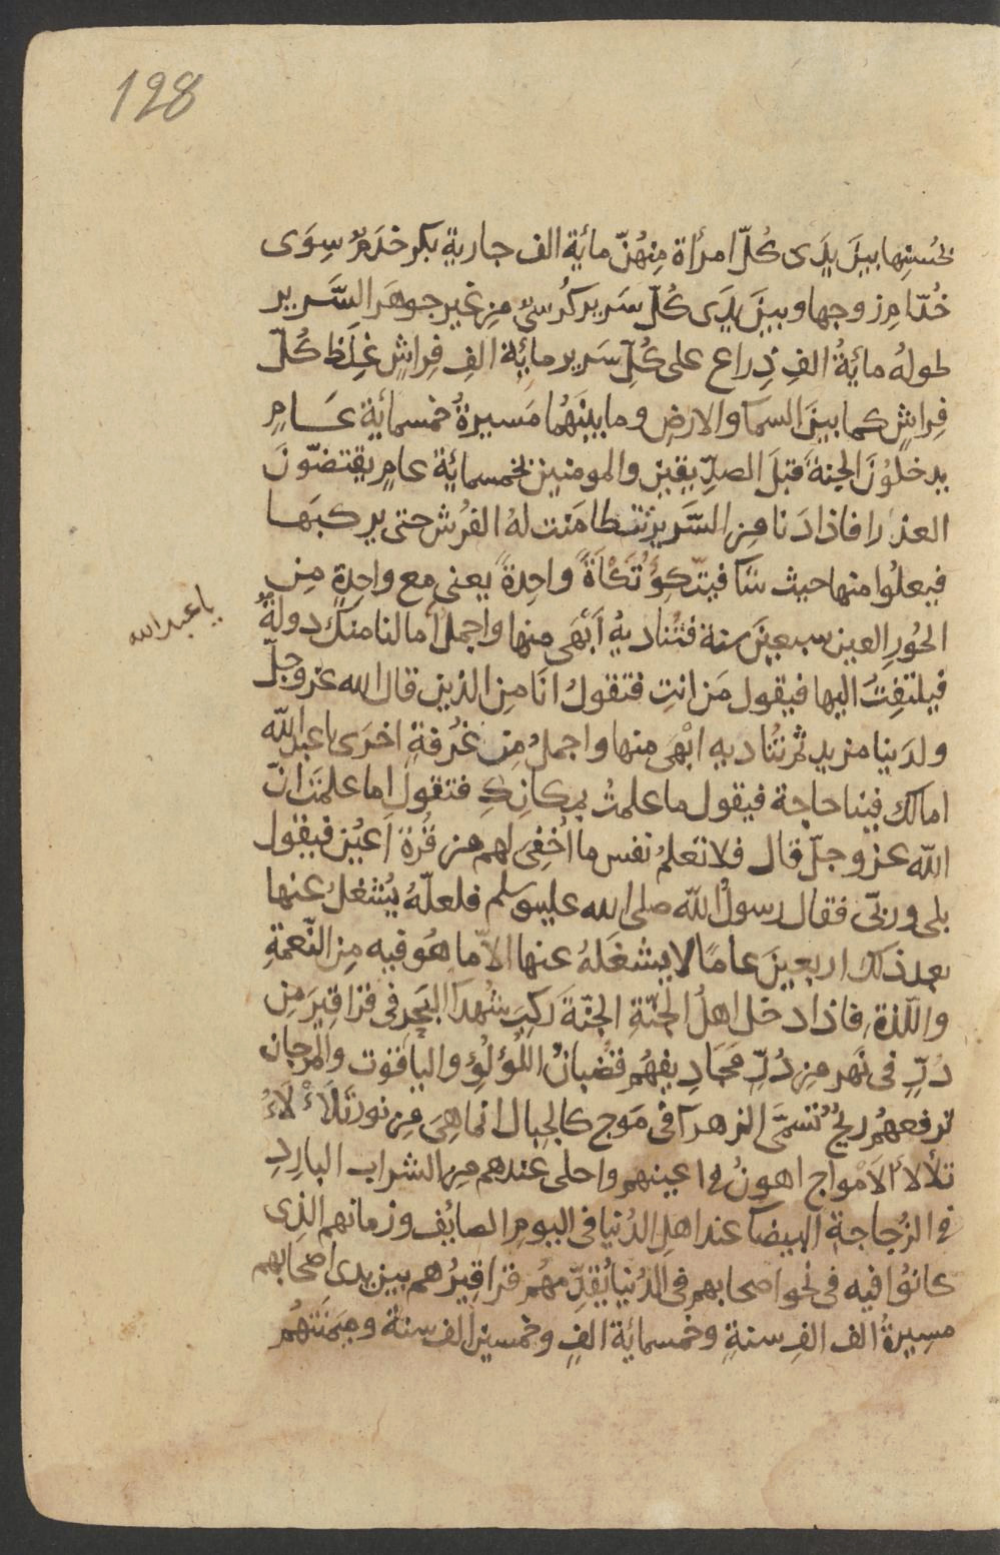 128
لحُسْنِها بينَ يدَى كُلّ امرأة مِنهُنّ مائية الف جارية بكر خدَمٌ سِوَى
خُدّام زوجها وبينَ يدَى كُلّ سَرير كُرسىّ مِن غير جوهَر السَّرير
طولهُ مائيةُ الفِ ذِراع على كُلِّ سَرير مائِية الفِ فِراشٍ غِلَظ كُلّ
فِراشٍ كما بينَ السمآ والارضِ وما بينَهُما مَسيرةُ خمسمائية عَامٍ
يدخلُوُنَ الجنةَ قبلَ الصدِّيقين والمومنين بخمسمائية عامٍ يقتضّونَ
العذارا فاذا دَنا مِن السَّرير تطامَنت لهُ الفُرُش حتى يركبَها
فيعلوُا منها حيث شآ فيتّكِؤُ تَكْأَةً واحِدةً يعنى مع واحِدةٍ مِن
الحُورِ العين سبعينَ سنة فتُناديهُ أَبْهَى منها واجملُ أما لنا منكَ دولةٌ
يا عبد الله
فيلتفِتُ اليها فيقول مَن انتِ فتقولُ انَا مِن الذين قال الله عز وجلّ
ولدَينا مزيد ثم تُناديهِ ابْهَى منها واجملُ مِن غُرفةٍ اخرَى يا عبدالله
امالك فينا حاجة فيقول ما علمتُ بمكانِكِ فتقول اما علمتَ انّ
الله عز وجلّ قال فلا تعلمُ نفس ما اُخفِى لهم من قُرة اَعيُن فيقول
بلى وربّى فقال رسولُ الله صلى الله عليه وسلم فلعلّهُ يُشْغلُ عنها
بعد ذلك اربعينَ عامًا لا يشغَلهُ عنها الاّ ما هُو فيه مِن النّعمةِ
واللذة فاذا دخل اهلُ الجنّةِ الجنّةَ ركِبَ شُهدآ البَحرِ فى قراقِيرَ مِن
دُرٍّ فى نَهر مِن دُرٍّ مَجَادِيفهُم قضبانُ اللؤلُؤِ والياقوت والمرجان
ترفعهُم ريحٌ تُسمّى الزهرآ فى مَوج كالجبال انما هِىَ مِن نور تَلَأْلَاءُ
تلألأ الاَمواج اهونُ فى اعينهم واحلى عندهم مِن الشراب البارِدِ
فى الزُجاجةِ البيضآ عند اهلِ الدُنيا فى اليومِ الصايُف وزمانهم الذِى
كانوُا فيه فى نحو اصحابهم فى الدُنيا يُقدِّمهُم قراقِيرُهم بين يدى اصحابهم
مسِيرةُ الف الفِ سنةٍ وخمسمائية الفٍ وخمسين الف سنة وميمَنَتهُم